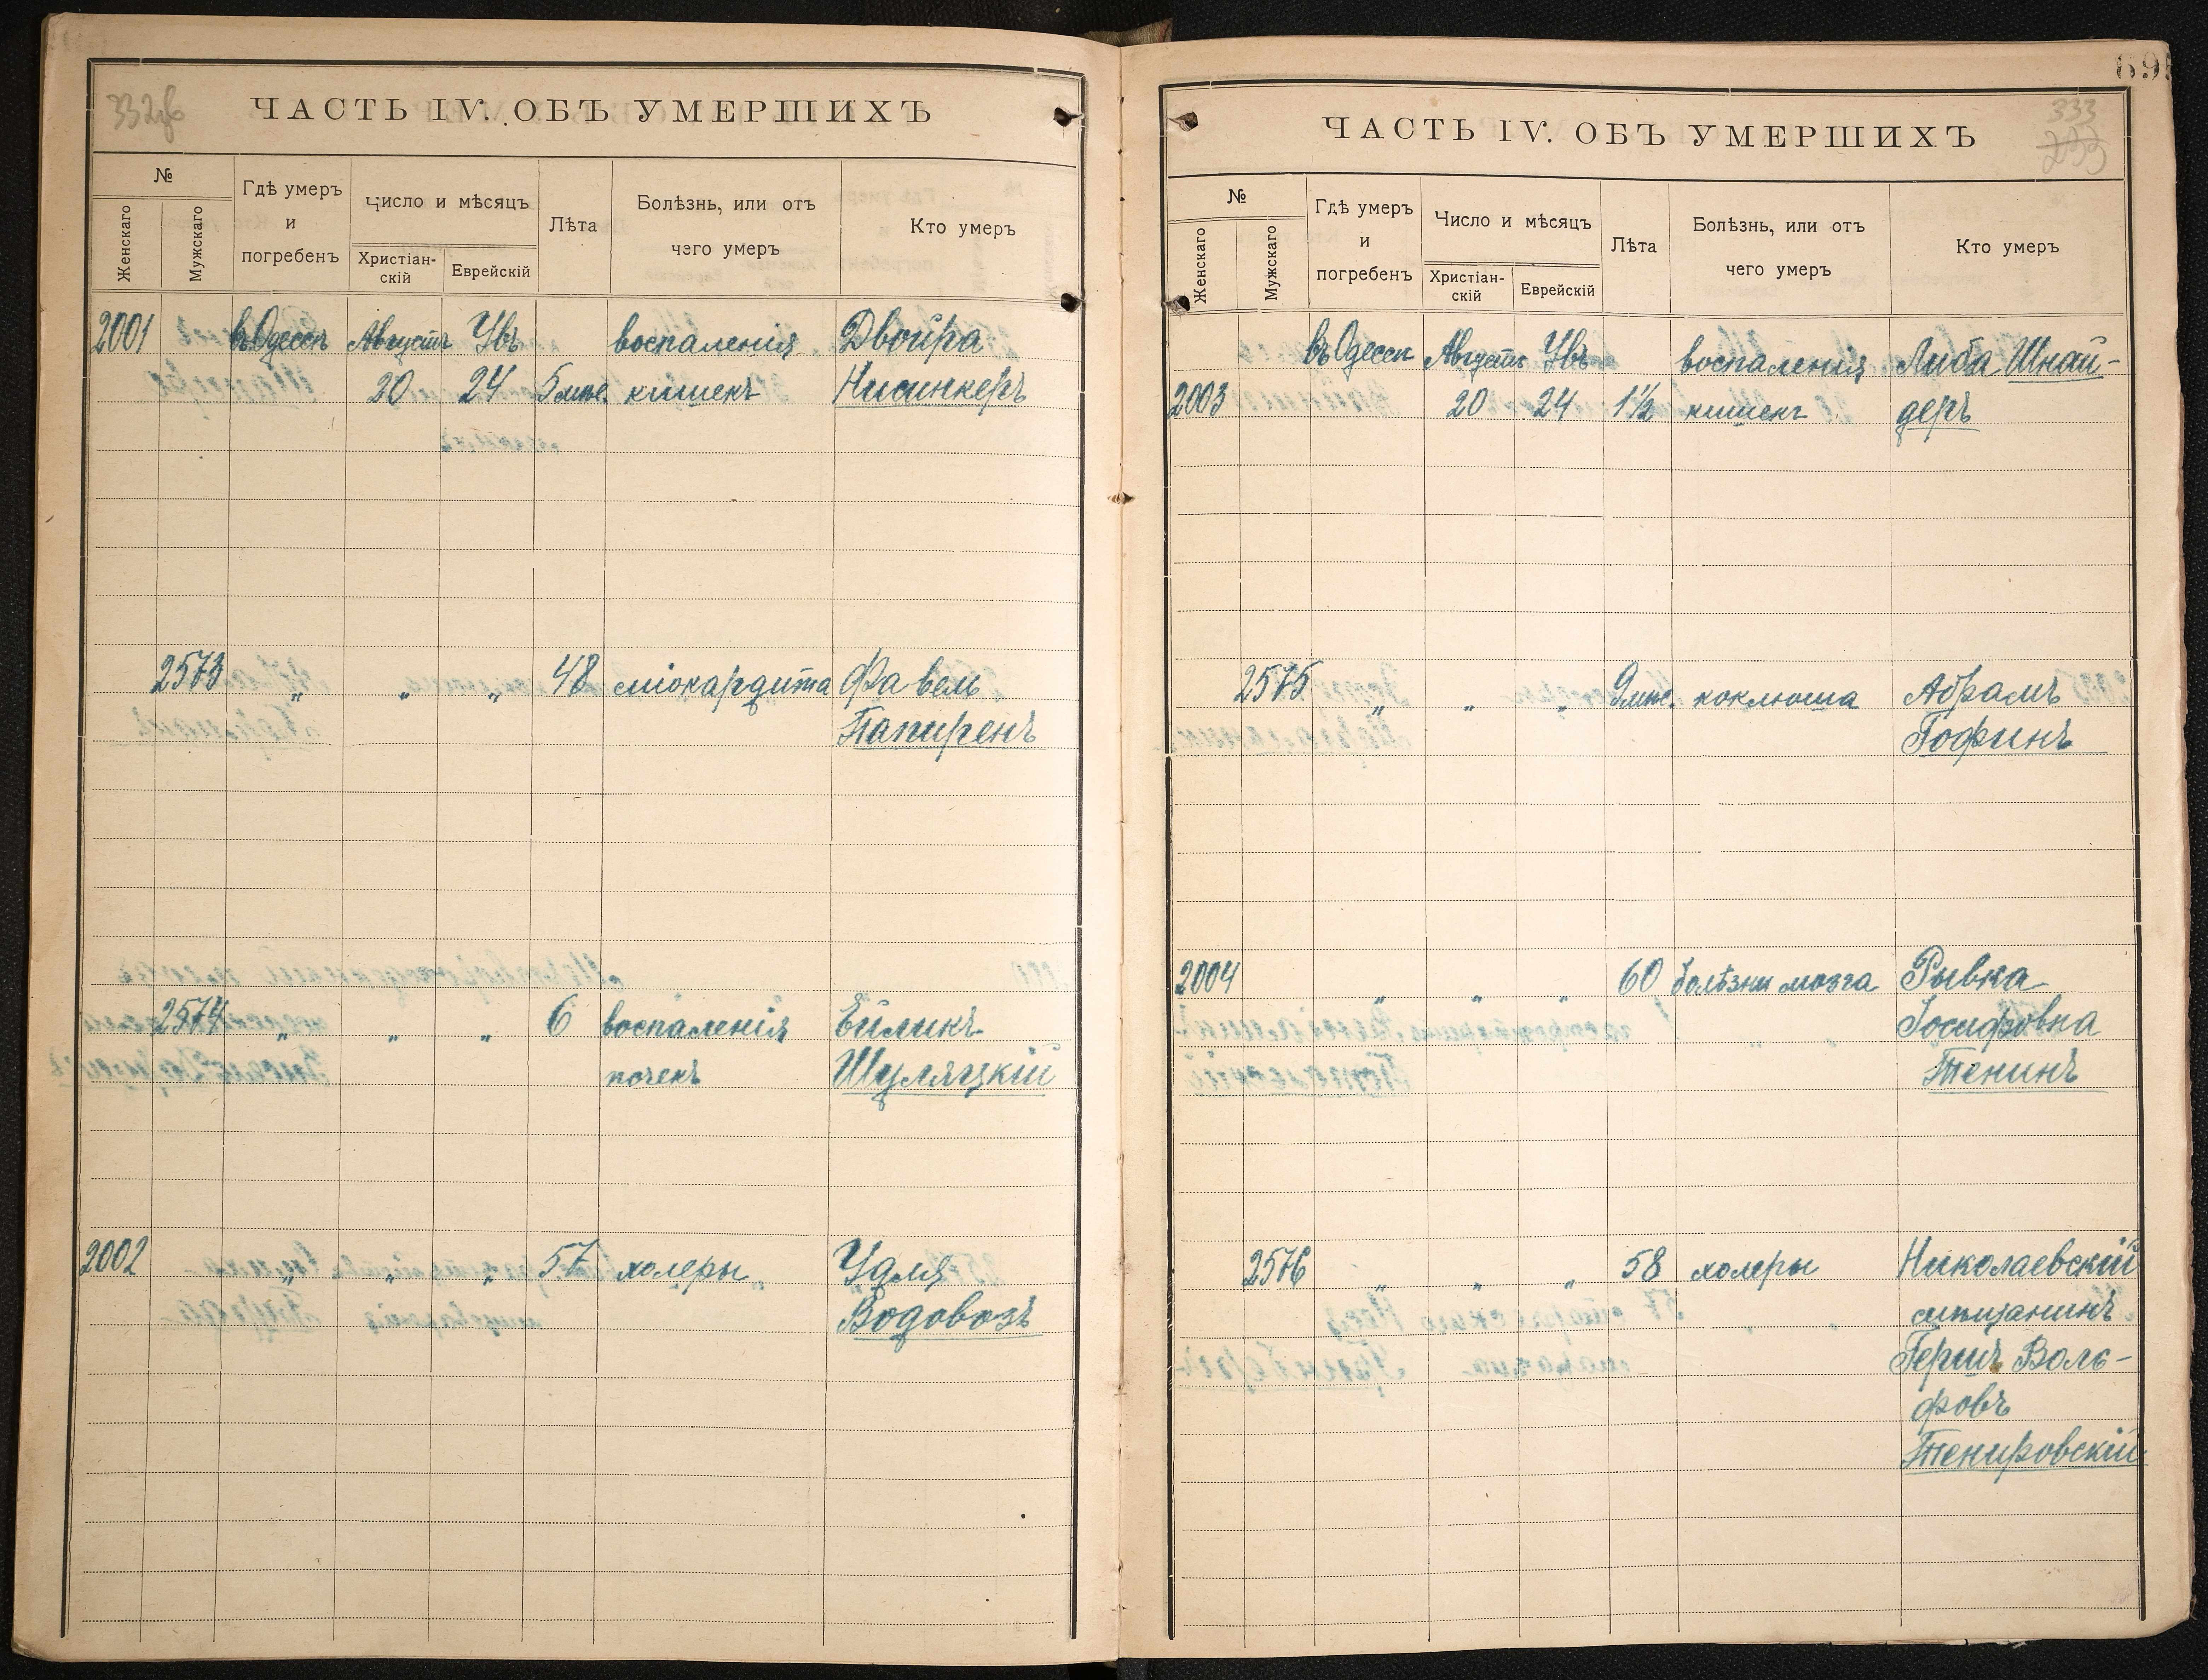 332об
ЧАСТЬ IV. ОБЪ УМЕРШИХЪ
№
Женскаго
Мужскаго
Гдѣ умеръ
и
погребенъ
Число и мѣсяцъ
Христіан-
скій
Еврейскій
Лѣта
Болѣзнь, или отъ
чего умеръ
Кто умеръ
2001 въ Одессѣ Августъ Увъ воспаленія Двойра
20 24 5 мѣс. кишекъ Нисинкеръ
2573 „ „ „ 48 міокардита Фавель
Папиренъ
2574 „ „ „ 6 воспаленія Ейликъ
почекъ Шуляцкій
2002 „ „ „ 57 холеры Удля
Водовозъ
695
333
233
ЧАСТЬ IV. ОБЪ УМЕРШИХЪ
№
Женскаго
Мужскаго
Гдѣ умеръ
и
погребенъ
Число и мѣсяцъ
Христіан-
скій
Еврейскій
Лѣта
Болѣзнь, или отъ
чего умеръ
Кто умеръ
въ Одессѣ Августъ Увъ воспаленія Либа Шнай-
2003 20 24 1½ кишекъ деръ
2575 „ „ „ 9 мѣс. коклюша Абрамъ
Гофинъ
2004 „ „ „ 60 болѣзни мозга Рывка
Іосифовна
Тенинъ
2576 „ „ „ 58 холеры Николаевскій
мѣщанинъ
Гершъ Воль-
фовъ
Тенировскій